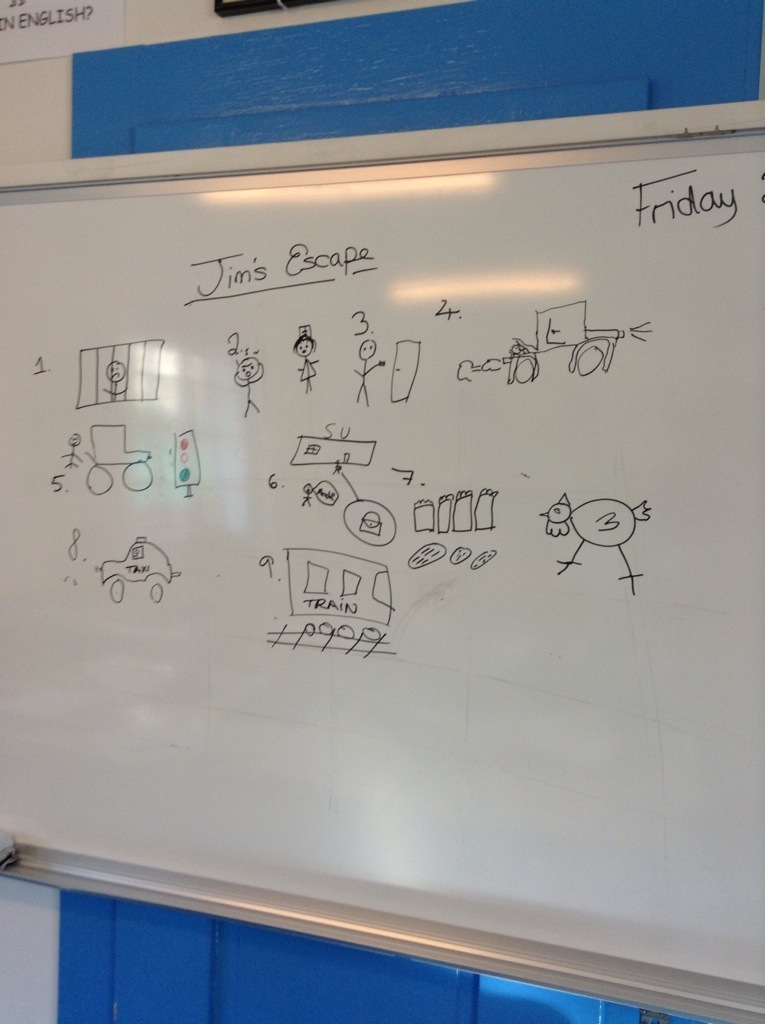 IN ENGLISH?
Friday
Jim's Escape
1.
2.
3.
4.
5.
SU
6.
7.
3
8.
TAXI
9.
TRAIN